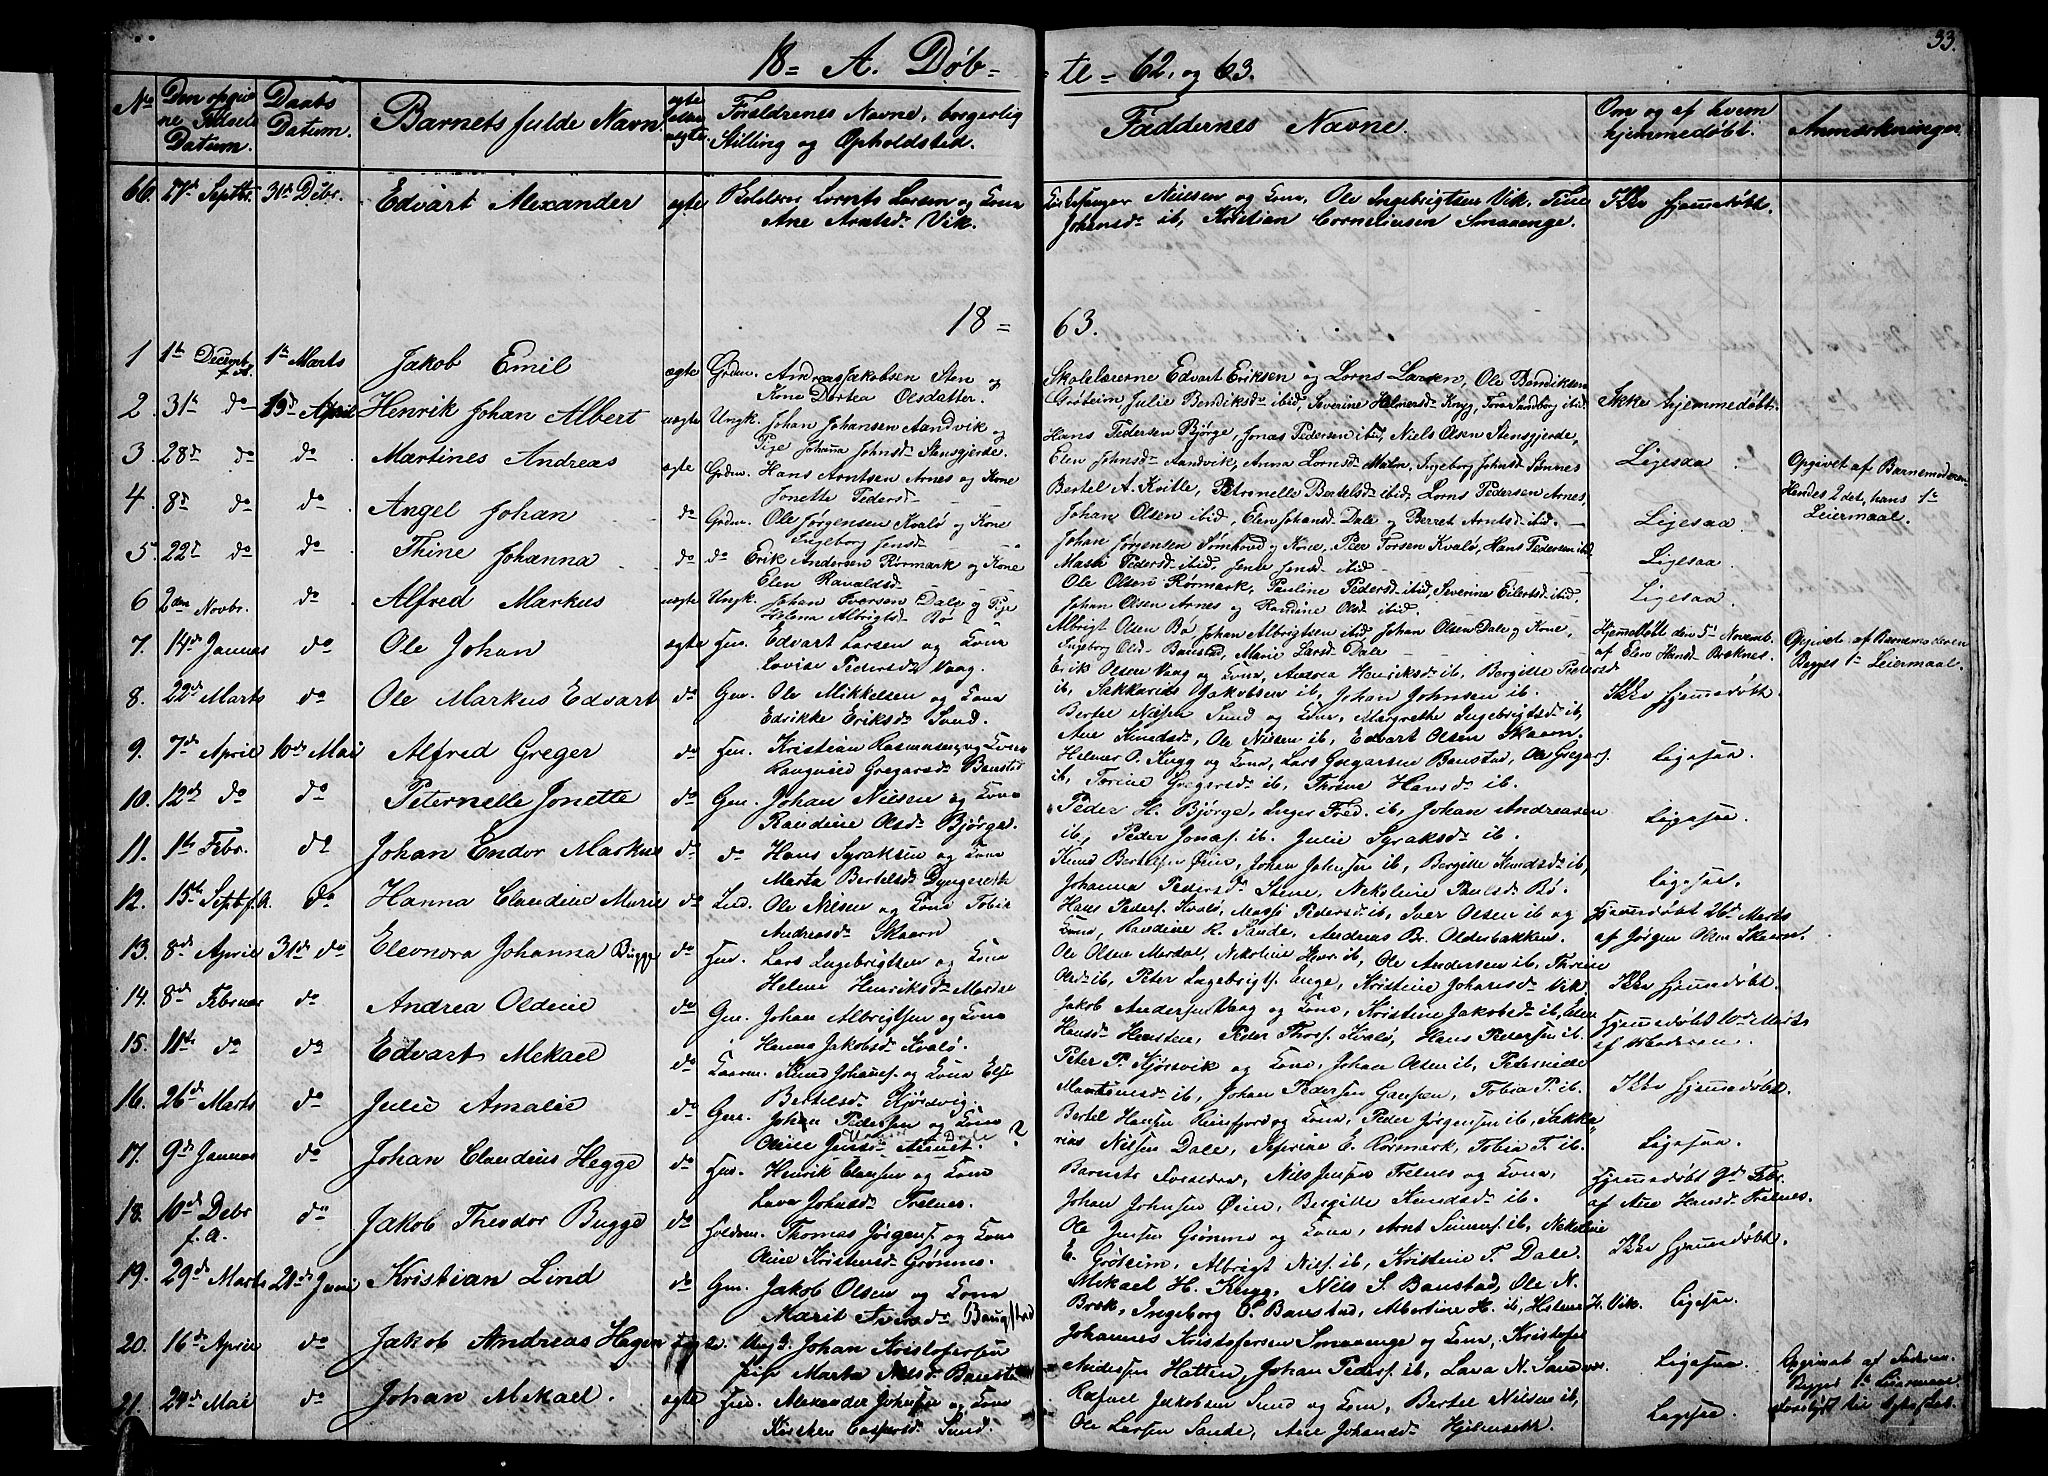 33.
18 = A. Døb = te = 62, og 63.
No
Den opgivne Fødsels Datum.
Daabs Datum.
Barnets fulde Navn
ægte eller uægte
Foreldrenes Navne, borgerlig Stilling og Opholdsted.
Faddernes Navne.
Om og af hvem hjemmedøbt.
Anmærkninger
66. 27de Septbr. 31te Debr. Edvart Alexander ægte Lornts Larsen og Kona
Ane Arntsd. Vik.
Nielsen og Kona, Ole Ingebrigtsen Vik, Tine
Johansd. ib, Kristian Corneliusen Smaaenge.
Ikke hjemmedøbt.
18 = 63.
1 1te Decemb. f. A. 1te Marts Jakob Emil ægte Grdm. Andreas Jakobsen Sten og
Kone Dortea Olsdatter.
Skolelærerne Edvart Eriksen og Lorns Larsen, Ole Bendiksen
Grøteim, Julie Bendiksd. ibid, Severine Helmersd. Kngg, Tore Sandberg ibid.
Ikke hjemmedøbt.
2. 31te do 19de April Henrik Johan Albert uægte Ungk. Johan Johansen Aandvik og
Pige Johanna Johnsd. Stensgjerde.
Hans Pedersen Bjørge, Jonas Pedersen ibid, Niels Olsen Stensgjerde,
Elen Johnsd. Aandvik, Anna Lornsd. Malm, Ingeborg Johnsd. Sømnes
Ligesaa
Opgivet af Barnemoderen
Hendes 2det, hans 1te
Leiermaal.
3. 28de do do Martines Andreas ægte Grdm. Hans Arntsen Arnes og Kone
Jonette Pedersd.
Bertel A. Kvitle, Petronelle Bertelsd. ibid, Lorns Pedersen Arnes,
Johan Olsen ibid, Elen Johansd. Dale og Berret Arntsd. ibid.
Ligesaa.
4. 8de do do Angel Johan do Grdm. Ole Jørgensen Kvalø og Kone
Ingeborg Jensd.
Johan Jørgensen Sømhovd og Kone, Peer Torsen Kvalø, Hans Pedersen ibid
Masi Pedersd. ibid, Jone Jensd. ibid
Ligesaa.
5. 22de do do Thine Johanna do do Erik Andersen Rørmark og Kone
Elen Ravaldsd.
Ole Olsen Rørmark, Pauline Pedersd. ibid, Severine Eilertsd. ibid,
Johan Olsen Arnes og Randine Olsd. ibid.
Ligesaa.
6 2den Novbr. do Alfred Markus uægte Ungk. Johan Iversen Dale og Pige
Helena Albrigtsd. Bø
Albrigt Olsen Bø, Johan Albrigtsen ibid, Johan Olsen Dale og Kone,
Ingeborg Olsd. Baustad, Marie Larsd. Dale
Hjemmedøbt den 5te Novemb.
af Elen Hansd. Breknes.
Opgivet af Barnemoderen
Begges 1te Leiermaal.
7. 14de Januar do Ole Johan ægte Edvart Larsen og Kona
Lovise Pedersd. Vaag.
Erik Olsen Vaag og Kona, Andrea Henriksd. ib, Bergitte Pedersd
ib, Sakkarias Jakobsen ib, Johan Johnsen ib.
Ikke hjemmedøbt.
8. 22de Marts do Ole Markus Edvart do Ole Mikkelsen og Kona
Edrikke Eriksd. Sund.
Bertel Sund og Kona, Margrethe Ingebrigtsd. ib,
Ane Knudsd., Ole Nilsen ib, Edvart Olsen Skaarn.
9. 7de April 10de Mai Alfred Greger do Kristian Rasmussen og Kona
Gregersd. Baustad
Helmer O. Kngg og Kona, Lars Gregersen Baustad, Ole Gregers.
ib, Torine Gregersd. ib, Thrine Hansd. ib.
Ligesaa.
10. 12de do do Peternelle Jonette do Johan Nilsen og Kona
Randine Olsd. Bjørge.
Peder H. Bjørge, Inger Fred. ib, Johan Andreasen
ib, Peder Jonas. ib, Julie Syraksd. ib.
Ligesaa.
11. 1te Febr. do Johan Endor Markus do do Hans Syraksen og Kona
Marta Bertelsd.
Knud Bertelsen Øien, Johan Johnsen ib, Bergitte Knudsd. ib,
Johanna Pedersd. Stene, Nekoline Paulsd. Bø.
Ligesaa.
12. 15te Septbr. f. A. do Hanna Claudine Marie do Ind. Ole Nilsen og Kona Tobia
Andreasd. Skaarn
Hans Peders. Kvalø, Massi Pedersd. ib, Iver Olsen ib og
Kona, Randine R. Sande, Andreas Br. Oldesbakken.
hjemmedøbt 26de Marts
af Jørgen Olsen Skaarn.
13. 8de April 31te do Eleonora Johanna Bugge do Lars Ingebrigtsen og Kona
Helene Henriksd.
Ole Olsen Merdal, Nekoline ib, Ole Andersen ib, Thrine
Olsd. ib, Peter Ingebrigts. Enge, Kristine Johansd. Vik.
Ikke hjemmedøbt.
14. 8de Februar do Andrea Oldine do Johan Albrigtsen og Kona
Hanna Jakobsd. Kvalø.
Jakob Andersen Vaag og Kona, Kristine Jakobsd. ib, Elen
Hansd. Hensten, Peder Thors. Kvalø, Hans Pedersen ib
hjemmedøbt 10de Marts
af Moderen.
15. 11te do do Edvart Mekael do Knud Johans. og Kona Else
Bertelsd.
Peter P. Kjørsvik og Kona, Johan Olsen ib, Peternille
Mortensd. ib, Johan Pedersen Gansen, Tobia P. ib.
Ikke hjemmedøbt.
16. 26de Marts do Julie Amalie do Johan Pedersen og Kona
Oline Jensd. Dale ?
Bertel Hansen Reinfjord og Kona, Peder Jørgensen ib, Sakka-
rias Nilsen Dale, Severine E. Rørmark, Tobia T. ib.
Ligesaa.
17. 9de Januar do Johan Claudius Hegge do Henrik Clausen og Kona
Lava Johnsd. Trelnes.
Barnets Foreldre, Nils Jensen Trelnes og Kona,
Johan Johnsen Øien, Bergitte Knudsd. ib.
hjemmedøbt 9de Febr.
af Ane Hansd. Trelnes.
18. 10de Debr f. A. do Jakob Theodor Bugge do Thomas Jørgens. og Kona
Oline Kristensd. Grønnes.
Ole Jensen Grønnes og Kona, Arnt Simons. ib, Nekoline
E. Grøteim, Albrigt Nils. ib, Kristine T. Dale.
Ikke hjemmedøbt.
19. 29de Marts 21de Juni Kristian Lind do Jakob Olsen og Kona
Marit Iversd. Baugstad
Mekael H. Kngg, Nils S. Baustad, Ole N.
Brek, Ingeborg O. Baustad, Albertine H. ib, Helmer H. Vik.
Ligesaa.
20. 16de April do Jakob Andreas Hagen uægte. Ungk. Johan Kristofersen
Pige Marta Nilsd. Baustad
Johannes Kristofersen Smaaenge og Kona, Kristofer
Andersen Hatten, Johan Peders. ib, Lava N. Sandnes.
Ligesaa.
Opgivet af Faderen
Begges 1te Leiermaal
21. 24de Mai do Johan Mekael. ægte Alexander Johnsen og Kona
Kirsten Caspersd. Sund.
Rafael Jakobsen Sund og Kona, Bertel Nilsen ib,
Ole Larsen Sande, Ane Johansd.
Ligesaa.